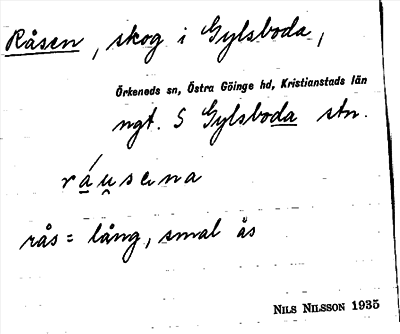 Råsen, skog i Gylsboda,
Örkeneds sn, Östra Göinge hd, Kristianstads län
ngt. S Gylsboda stn.
ráu̯sena
rås = lång, smal ås
NILS NILSSON 1935